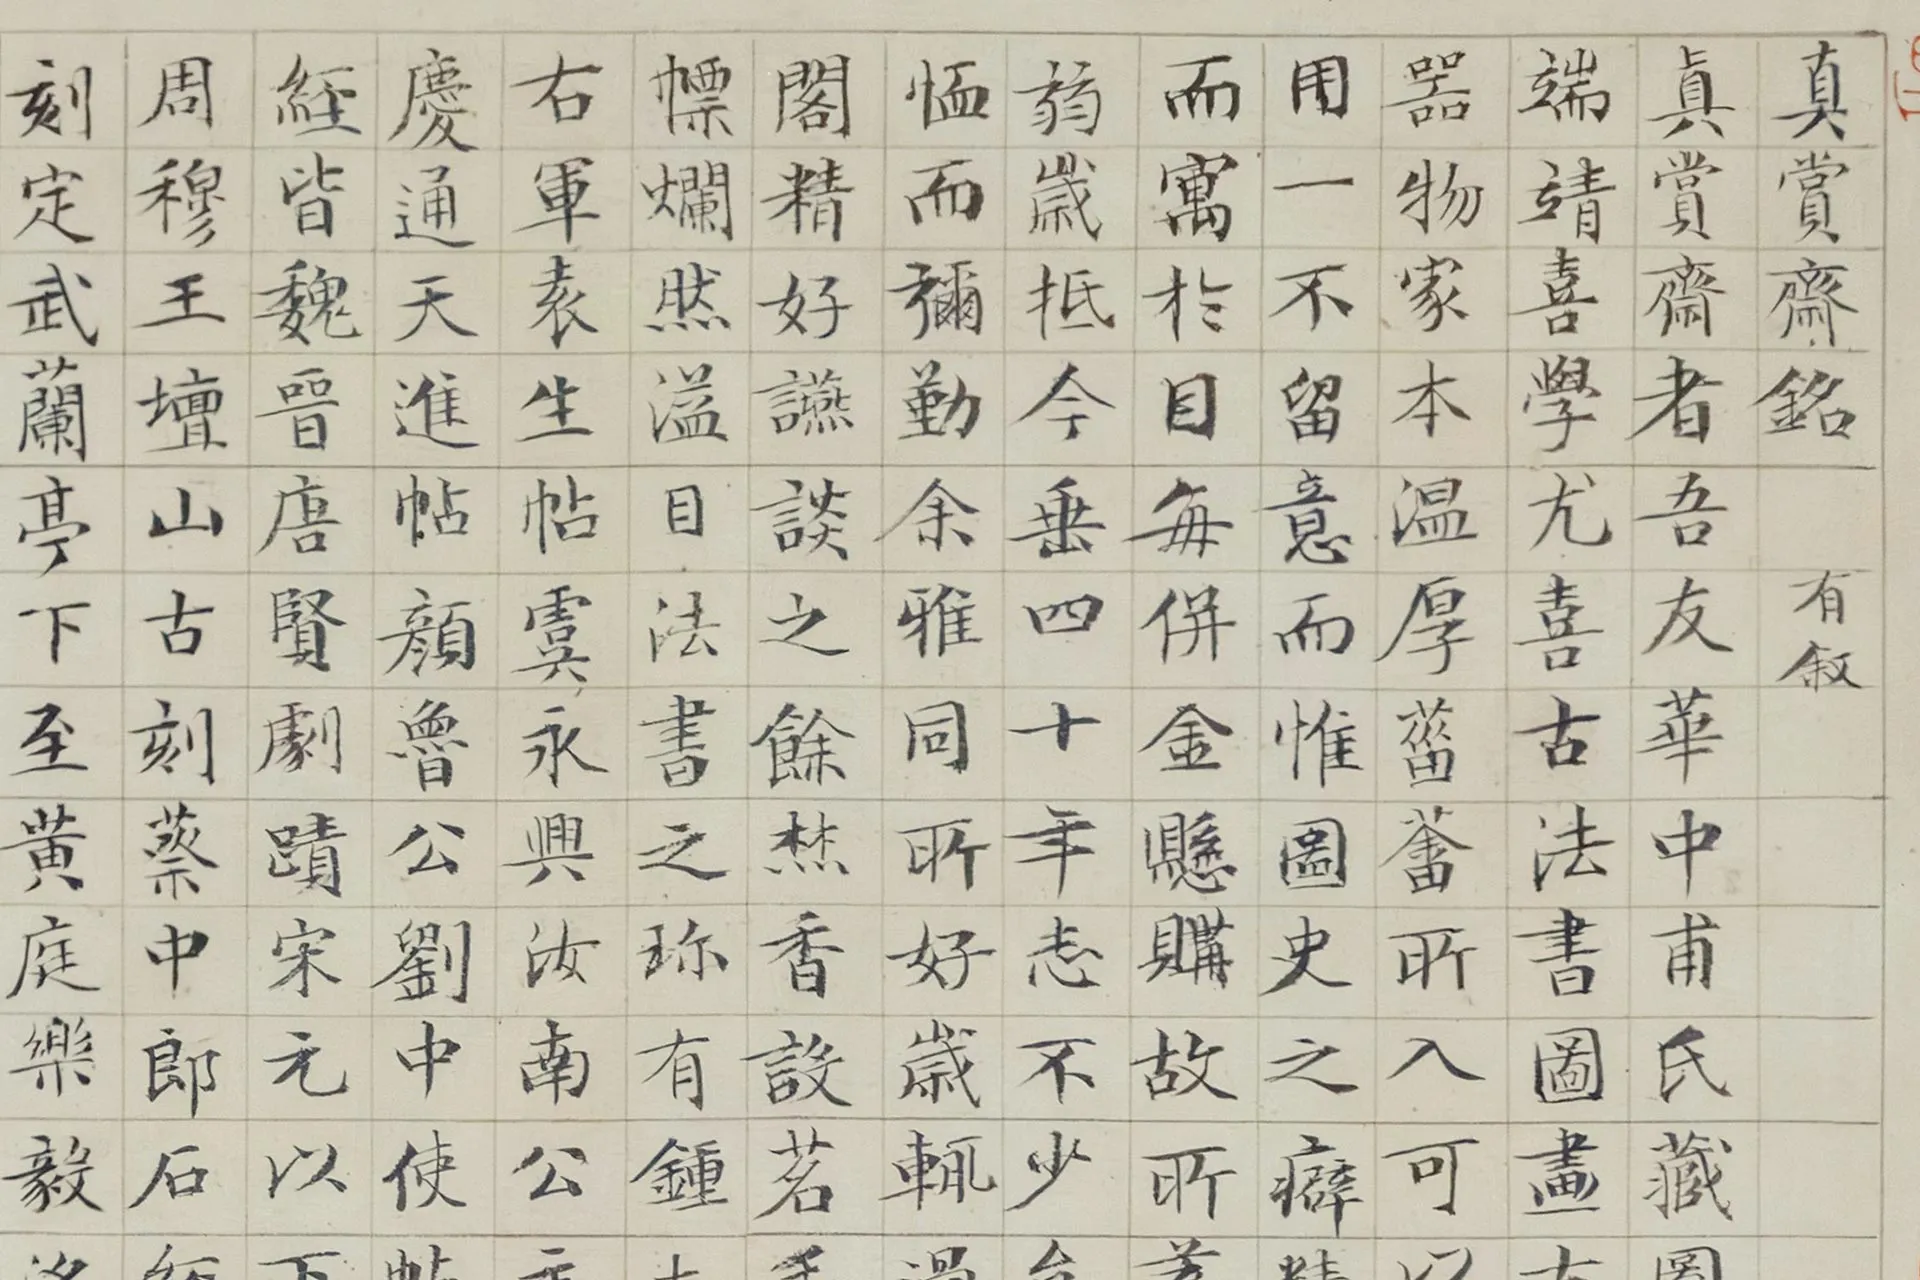 真賞齋銘 有敘
眞賞齋者吾友華中甫氏藏圖
端靖喜學尤喜古法書圖畫古
器物家本温厚菑畬所入可以
用一不留意而惟圖史之癖精
而寓於目每併金懸購故所
弱歲抵今垂四十年志不少
恤而彌勤余雅同所好歲輒過
閣精好讌談之餘焚香設茗手
幖爛然溢目法書之珍有鍾
右軍袁生帖虞永興汝南公主
慶通天進帖顏魯公劉中使帖
經皆魏晉唐賢劇蹟宋元以下
周穆王壇山古刻蔡中郎石經
刻定武蘭亭下至黃庭樂毅